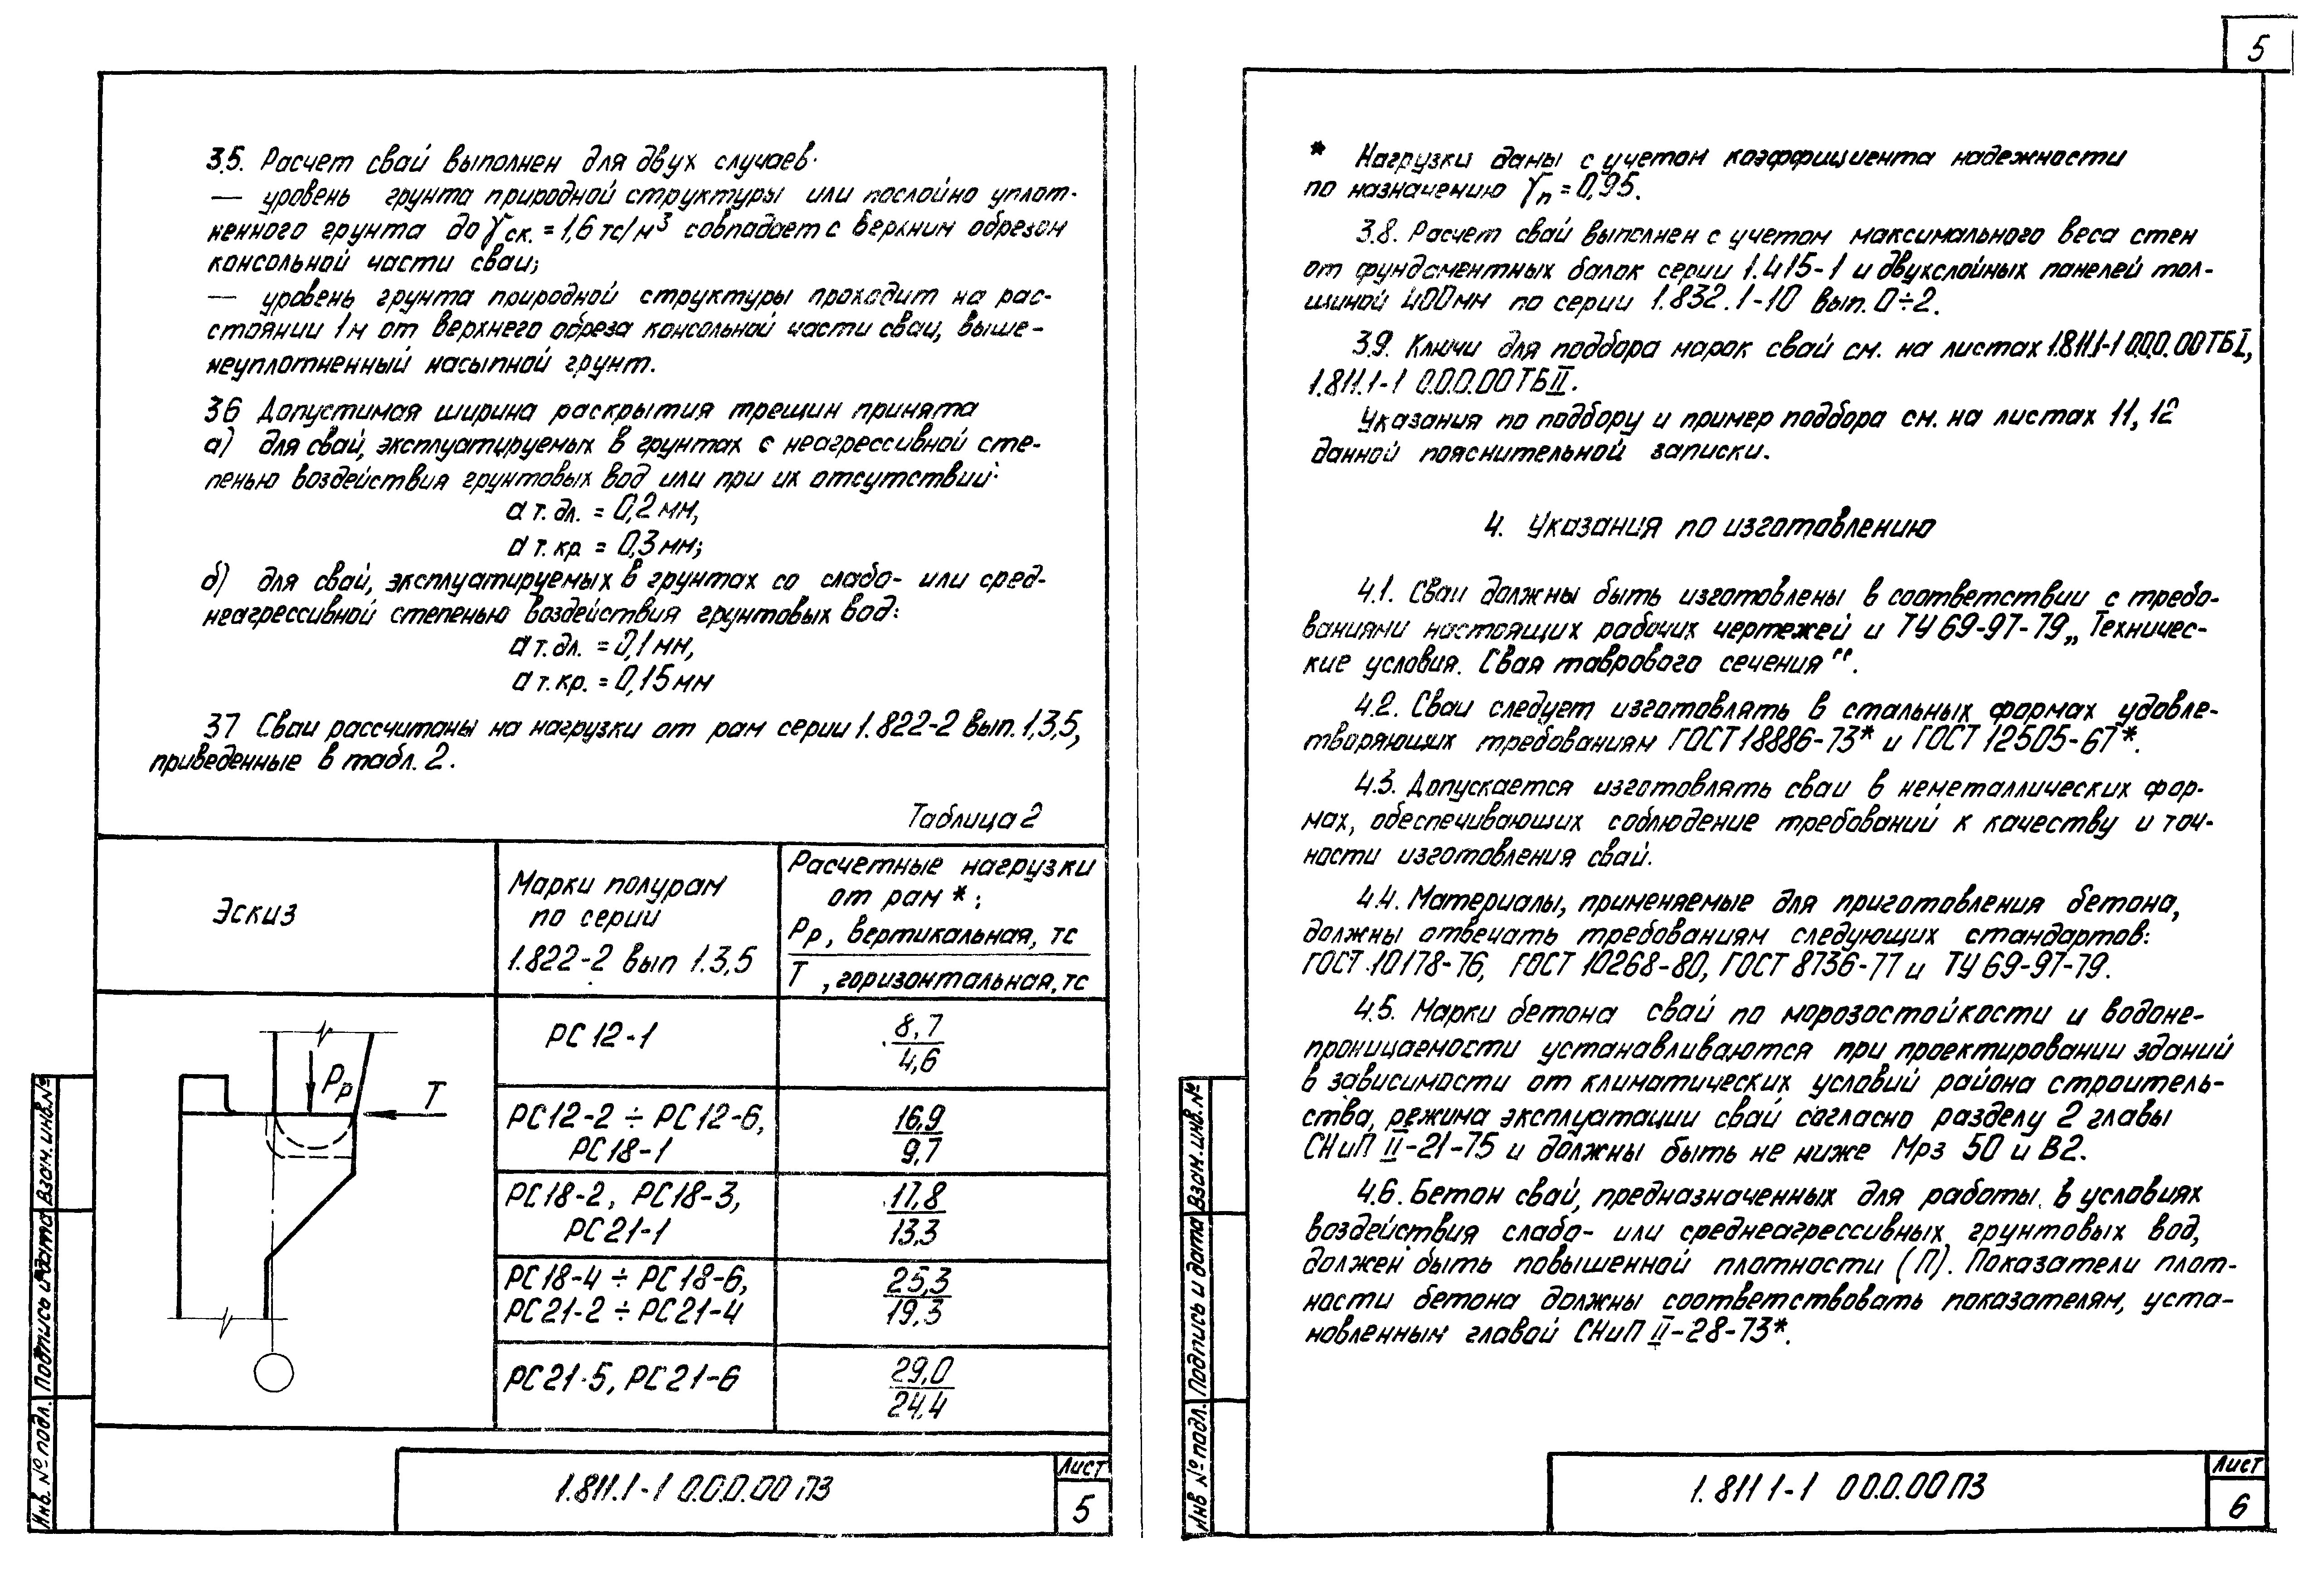 5
3.5. Расчет свай выполнен для двух случаев·
— уровень грунта природной структуры или послойно уплот-
ненного грунта до γск. = 1,6 тс/м³ совпадает с верхним обрезом
консольной части сваи;
— уровень грунта природной структуры проходит на рас-
стоянии 1м от верхнего обреза консольной части сваи, выше-
неуплотненный насыпной грунт.
3.6 Допустимая ширина раскрытия трещин принята
а) для свай, эксплуатируемых в грунтах с неагрессивной сте-
пенью воздействия грунтовых вод или при их отсутствий·
а т. дл. = 0,2 мм,
а т. кр = 0,3 мм;
б) для свай, эксплуатируемых в грунтах со слабо- или сред-
неагрессивной степенью воздействия грунтовых вод:
а т. дл. = 0,1 мм,
а т. кр. = 0,15 мм
3.7 Сваи рассчитаны на нагрузки от рам серии 1.822-2 вып. 1,3,5,
приведенные в табл. 2.
Таблица 2
Эскиз
Марки полурам
по серии
1.822-2 вып 1.3,5
Расчетные нагрузки
от рам *;
Рр, вертикальная, тс
Т , горизонтальная, тс
Рр
Т
РС 12-1
8,7
4,6
РС12-2 ÷ РС12-6,
РС18-1
16,9
9,7
РС18-2, РС18-3,
РС21-1
17,8
13,3
РС18-4 ÷ РС18-6,
РС21-2 ÷ РС21-4
25,3
19,3
РС21-5, РС21-6
29,0
24,4
Инв. № подл. Подпись и дата Взам. инв. №
1.811.1-1 0.0.0.00 ПЗ
Лист
5
* Нагрузки даны с учетом коэффициента надежности
по назначению γп = 0,95.
3.8. Расчет свай выполнен с учетом максимального веса стен
от фундаментных балок серии 1.415-1 и двухслойных панелей тол-
щиной 400мм по серии 1.832.1-10 вып. 0÷2.
3.9. Ключи для подбора марок свай см. на листах 1.811.1-1 0.0.0.00ТБI,
1.811.1-1 0.0.0.00ТБII.
Указания по подбору и пример подбора см. на листах 11, 12
данной пояснительной записки.
4. Указания по изготовлению
4.1. Сваи должны быть изготовлены в соответствии с требо-
ваниями настоящих рабочих чертежей и ТУ 69-97-79 „Техничес-
кие условия. Свая таврового сечения“.
4.2. Сваи следует изготовлять в стальных формах удовле-
творяющих требованиям ГОСТ 18886-73* и ГОСТ 12505-67*.
4.3. Допускается изготовлять сваи в неметаллических фор-
мах, обеспечивающих соблюдение требований к качеству и точ-
ности изготовления свай.
4.4. Материалы, применяемые для приготовления бетона,
должны отвечать требованиям следующих стандартов:
ГОСТ 10178-76, ГОСТ 10268-80, ГОСТ 8736-77 и ТУ 69-97-79.
4.5. Марки бетона свай по морозостойкости и водоне-
проницаемости устанавливаются при проектировании зданий
в зависимости от климатических условий района строитель-
ства, режима эксплуатации свай согласно разделу 2 главы
СНиП II-21-75 и должны быть не ниже Мрз 50 и В2.
4.6. Бетон свай, предназначенных для работы в условиях
воздействия слабо- или среднеагрессивных грунтовых вод,
должен быть повышенной плотности (П). Показатели плот-
ности бетона должны соответствовать показателям, уста-
новленным главой СНиП II-28-73*.
Инв № подл. Подпись и дата Взам. инв. №
1.811 1-1 0 0.0.00 ПЗ
Лист
6